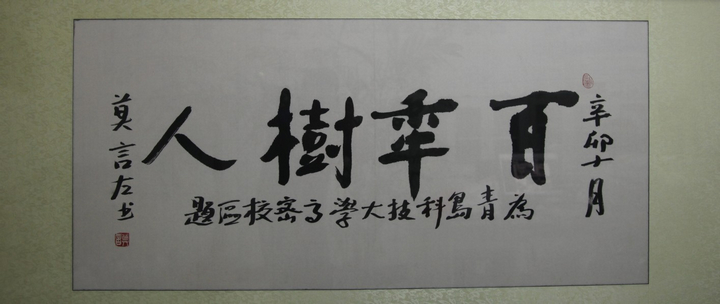 辛卯十月
百年樹人
為青島科技大學高密校區題
莫言左书